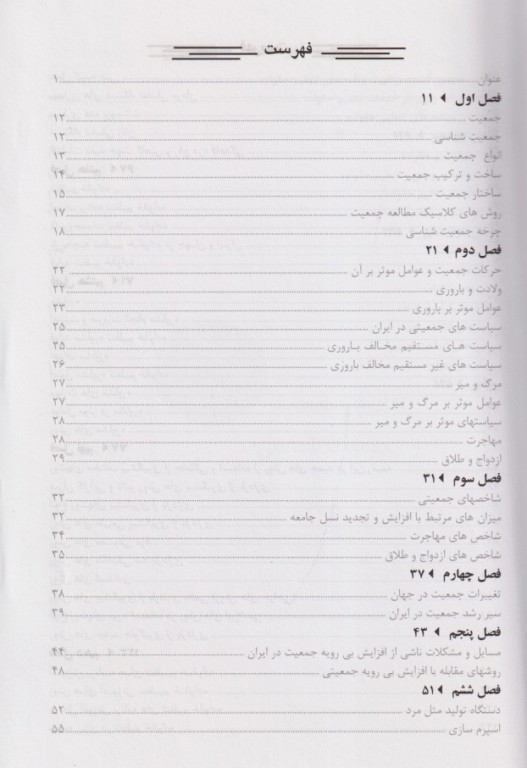 فهرست
عنوان ۱
فصل اول ۱۱
جمعیت ۱۲
جمعیت شناسی ۱۲
انواع جمعیت ۱۳
ساخت و ترکیب جمعیت ۱۴
ساختار جمعیت ۱۵
روش های کلاسیک مطالعه جمعیت ۱۷
چرخه جمعیت شناسی ۱۸
فصل دوم ۲۱
حرکات جمعیت و عوامل موثر بر آن ۲۲
ولادت و باروری ۲۲
عوامل موثر بر باروری ۲۳
سیاست های جمعیتی در ایران ۲۵
سیاست های مستقیم مخالف باروری ۲۵
سیاست های غیر مستقیم مخالف باروری ۲۶
مرگ و میر ۲۷
عوامل موثر بر مرگ و میر ۲۷
سیاستهای موثر بر مرگ و میر ۲۸
مهاجرت ۲۸
ازدواج و طلاق ۲۹
فصل سوم ۳۱
شاخصهای جمعیتی ۳۲
میزان های مرتبط با افزایش و تجدید نسل جامعه ۳۲
شاخص های مهاجرت ۳۴
شاخص های ازدواج و طلاق ۳۵
فصل چهارم ۳۷
تغییرات جمعیت در جهان ۳۸
سیر رشد جمعیت در ایران ۳۹
فصل پنجم ۴۳
مسایل و مشکلات ناشی از افزایش بی رویه جمعیت در ایران ۴۴
روشهای مقابله با افزایش بی رویه جمعیتی ۴۸
فصل ششم ۵۱
دستگاه تولید مثل مرد ۵۲
اسپرم سازی ۵۵